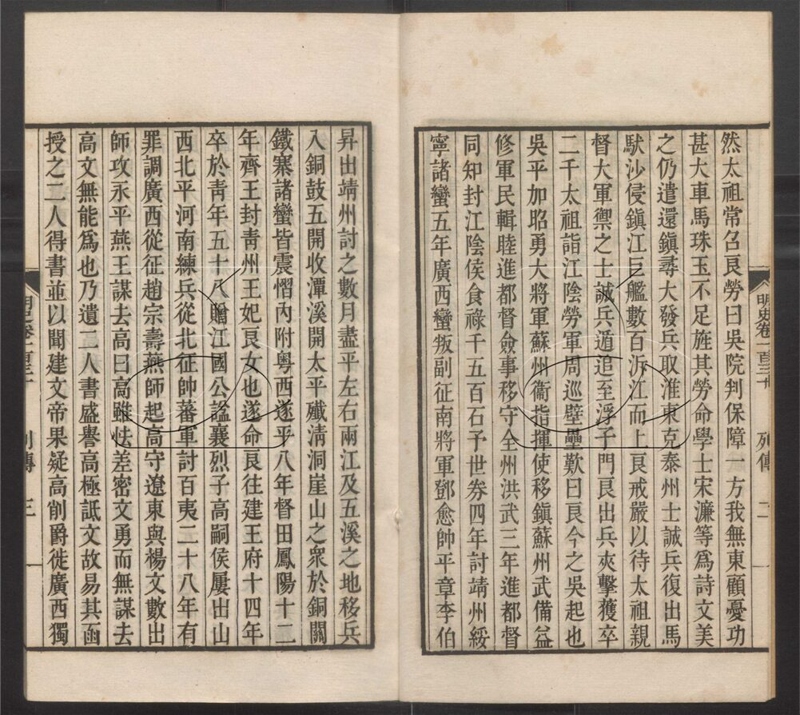 然太祖常召良勞曰吳院判保障一方我無東顧憂功
甚大車馬珠玉不足旌其勞命學士宋濂等爲詩文美
之仍遣還鎮尋大發兵取淮東克泰州士誠兵復出馬
馱沙侵鎮江巨艦數百泝江而上良戒嚴以待太祖親
督大軍禦之士誠兵遁追至浮子門良出兵夾擊獲卒
二千太祖詣江陰勞軍周巡壁壘歎曰良今之吳起也
吳平加昭勇大將軍蘇州衞指揮使移鎮蘇州武備益
修軍民輯睦進都督僉事移守全州洪武三年進都督
同知封江陰侯食祿千五百石予世券四年討靖州綏
寧諸蠻五年廣西蠻叛副征南將軍鄧愈帥平章李伯
明史卷一百三十 列傳 二
昇出靖州討之數月盡平左右兩江及五溪之地移兵
入銅鼓五開收潭溪開太平殲清洞崖山之衆於銅關
鐵寨諸蠻皆震慴內附粵西遂平八年督田鳳陽十二
年齊王封青州王妃良女也遂命良往建王府十四年
卒於青年五十八贈江國公謚襄烈子高嗣侯屢出山
西北平河南練兵從北征帥蕃軍討百夷二十八年有
罪調廣西從征趙宗壽燕師起高守遼東與楊文數出
師攻永平燕王謀去高曰高雖怯差密文勇而無謀去
高文無能爲也乃遺二人書盛譽高極詆文故易其函
授之二人得書並以聞建文帝果疑高削爵徙廣西獨
明史卷一百三十 列傳 三